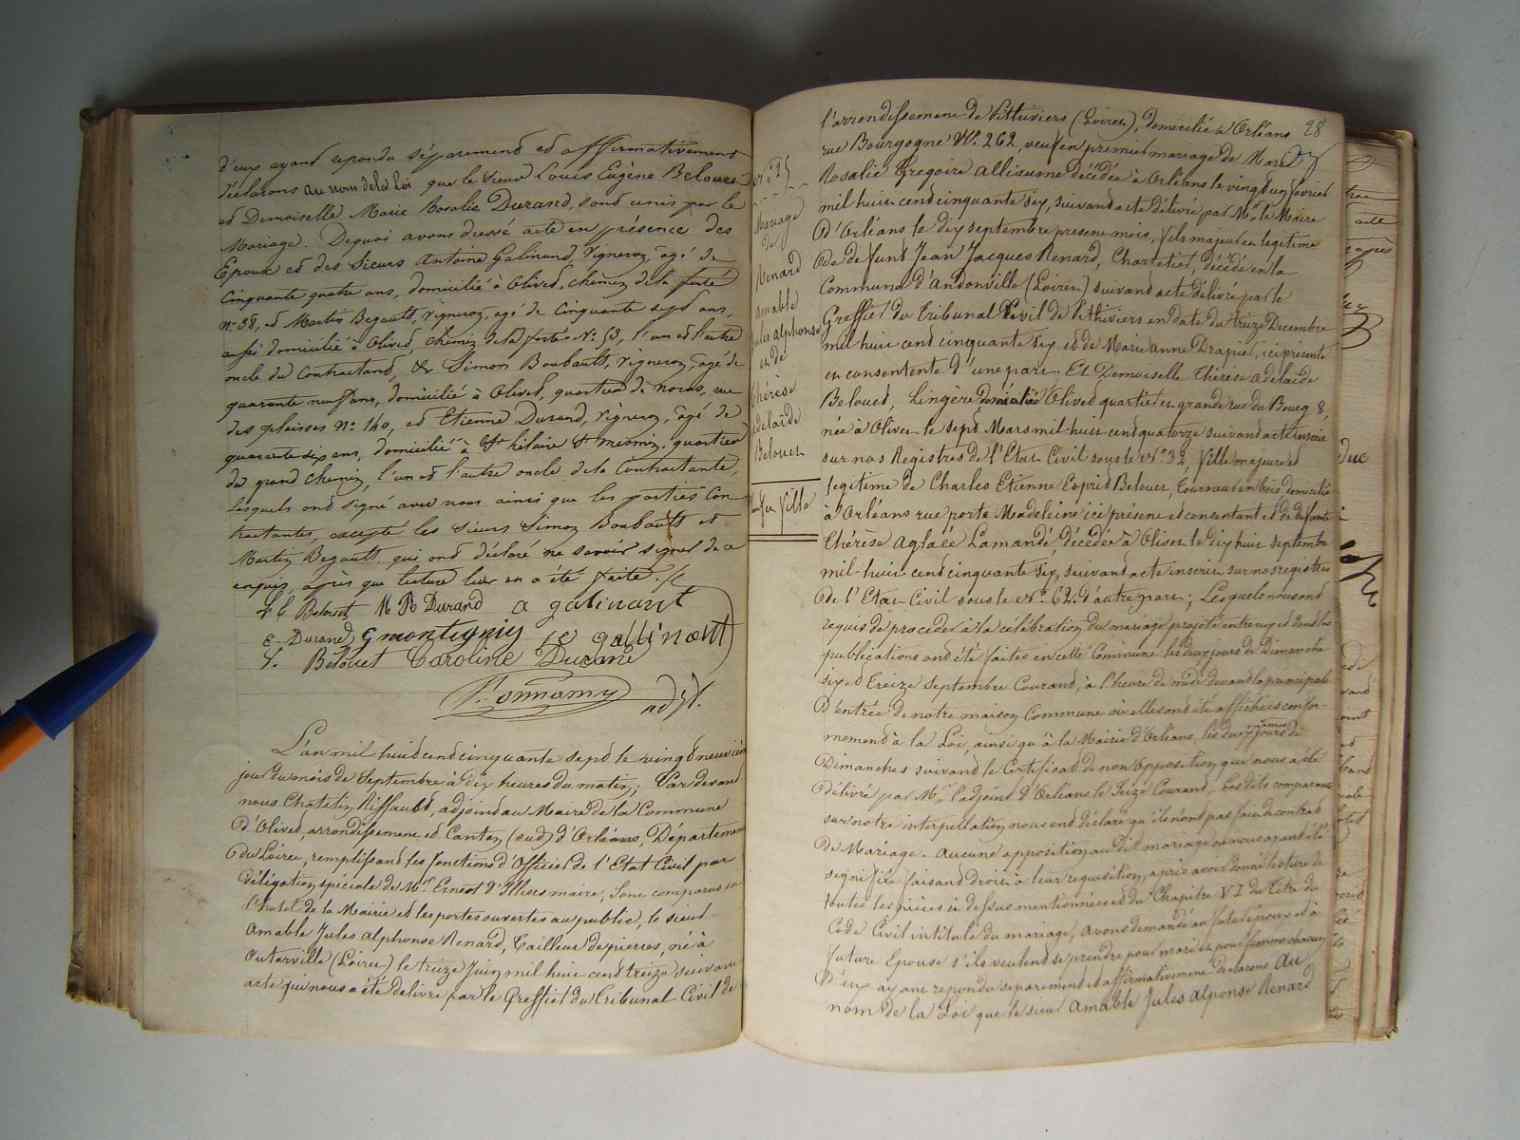 d'eux ayant repondu séparement et affirmativement
déclarons au nom de la loi que le sieur Louis Eugène Belouet
et Demoiselle Marie Rosalie Durand, sont unis par le
Mariage. Dequoi avons dressé acte en présence des
Epoux et des Sieurs Antoine Galinand, Vigneron, âgé de
Cinquante quatre ans, domicilié à Olivet, chemin de la ferté
N° 58, et Martin Begault, Vigneron, agé de Cinquante sept ans,
aussi domicilié à Olivet, chemin de la ferté N° 53, l'un et l'autre
oncle du Contractant, & Simon Boubault, Vigneron, agé de
quarante neuf ans, domicilié à Olivet, quartier de noras, rue
des plaisses N° 140, et Etienne Durand, Vigneron, âgé de
quarante six ans, domicilié à St hilaire St mesmin, quartier
du grand chemin, l'un et l'autre oncle de la Contractante,
lesquels ont signé avec nous ainsi que les parties Con-
tractantes, excepté les Sieurs Simon Boubault et
Martin Begault qui ont déclaré ne savoir signer de ce
enquis, après que lecture leur en a été faite.
L E Belouet M R Durand a galinant
E. Durand Gmontigny galinant
Belouet Caroline Durand
Bonnamy
adjt.
L'an mil huit cent cinquante sept le vingt neuvième
jour du mois de Septembre à dix heures du matin, Par devant
nous Chatelin Riffault, adjoint au Maire de la Commune
d'Olivet, arrondissement et Canton (sud) d'Orléans, Département
du Loiret, remplissant les fonctions d'Officier de l'Etat Civil par
délégation spéciale de Mr. Ernest d'Illiers maire, Sont comparus en
l'hotel de la Mairie et les portes ouvertes au public, le sieur
Amable Jules Alphonse Renard, Tailleur de pierres, né à
Outarville (Loiret) le treize Juin mil huit cent treize suivant
acte qui nous a été délivré par le Greffier du Tribunal Civil de
N° 25
Mariage
de
Renard
Amable
Jules alphonse
et de
Thérèse
Adelaïde
Belouet
Veuf et fille
28
l'arrondissement de Pithiviers (Loiret), domicilié à Orléans
rue Bourgogne N°. 262, veuf en premier mariage de Marie
Rosalie Gregoire Allisusne décédée à Orléans le vingt un fevrier
mil huit cent cinquante six, suivant acte délivré par Mr. le Maire
d'Orléans le dix septembre présent mois, fils majeur et legitime
de defunt Jean Jacques Renard, Charretier, décédé en la
Commune d'Andonville (Loiret) suivant acte délivré par le
Greffier du Tribunal Civil de Pithiviers en date du treize Decembre
mil huit cent cinquante six et de Marie Anne Drapier, ici présente
et consentente d'une part. Et Demoiselle Thérèse Adelaïde
Belouet, Lingère domiciliée à Olivet quartier et grande rue du Bourg 8,
née à Olivet le sept Mars mil huit cent quatorze suivant acte inscrit
sur nos Registres de l'Etat Civil sous le N° 32, fille majeure et
legitime de Charles Etienne Esprit Belouet, Tourneur en bois domicilié
à Orléans rue porte Madeleine ici présent et consentant et de defunte
Thérèse Aglaée Lamandé, décédée à Olivet le dix huit septembre
mil huit cent cinquante six, suivant acte inscrit sur nos registres
de l'Etat Civil sous le N°. 62, d'autre part; Lesquels nous ont
requis de proceder à la célébration du mariage projeté entre eux et dont les
publications ont été faites en cette Commune les deux jours de Dimanche
six et treize Septembre Courant, à l'heure de midi devant la principale
d'entrée de notre maison Commune où elles ont été affichées confor-
mement à la Loi, ainsi qu'à la Mairie d'Orléans, les deux mêmes jours de
Dimanches suivant le Certificat de non Opposition qui nous a été
délivré par Mr. l'adjoint d'Orléans le Seize Courant. Les dits comparans
sur notre interpellation nous ont déclaré qu'il n'ont pas fait de contrat
de Mariage. Aucune opposition au dit mariage ne nous ayant été
signifiée faisant droit à leur requisition, après avoir donné lecture de
toutes les pièces ci dessus mentionnées et du Chapitre VI du Titre du
Code Civil intitulé du mariage, avons demandé au futur époux et à
future Epouse s'ils veulent se prendre pour mari et pour femme chacun
d'eux ayant repondu séparement et affirmativement declarons Au
nom de la Loi que le sieur Amable Jules Alponse Renard